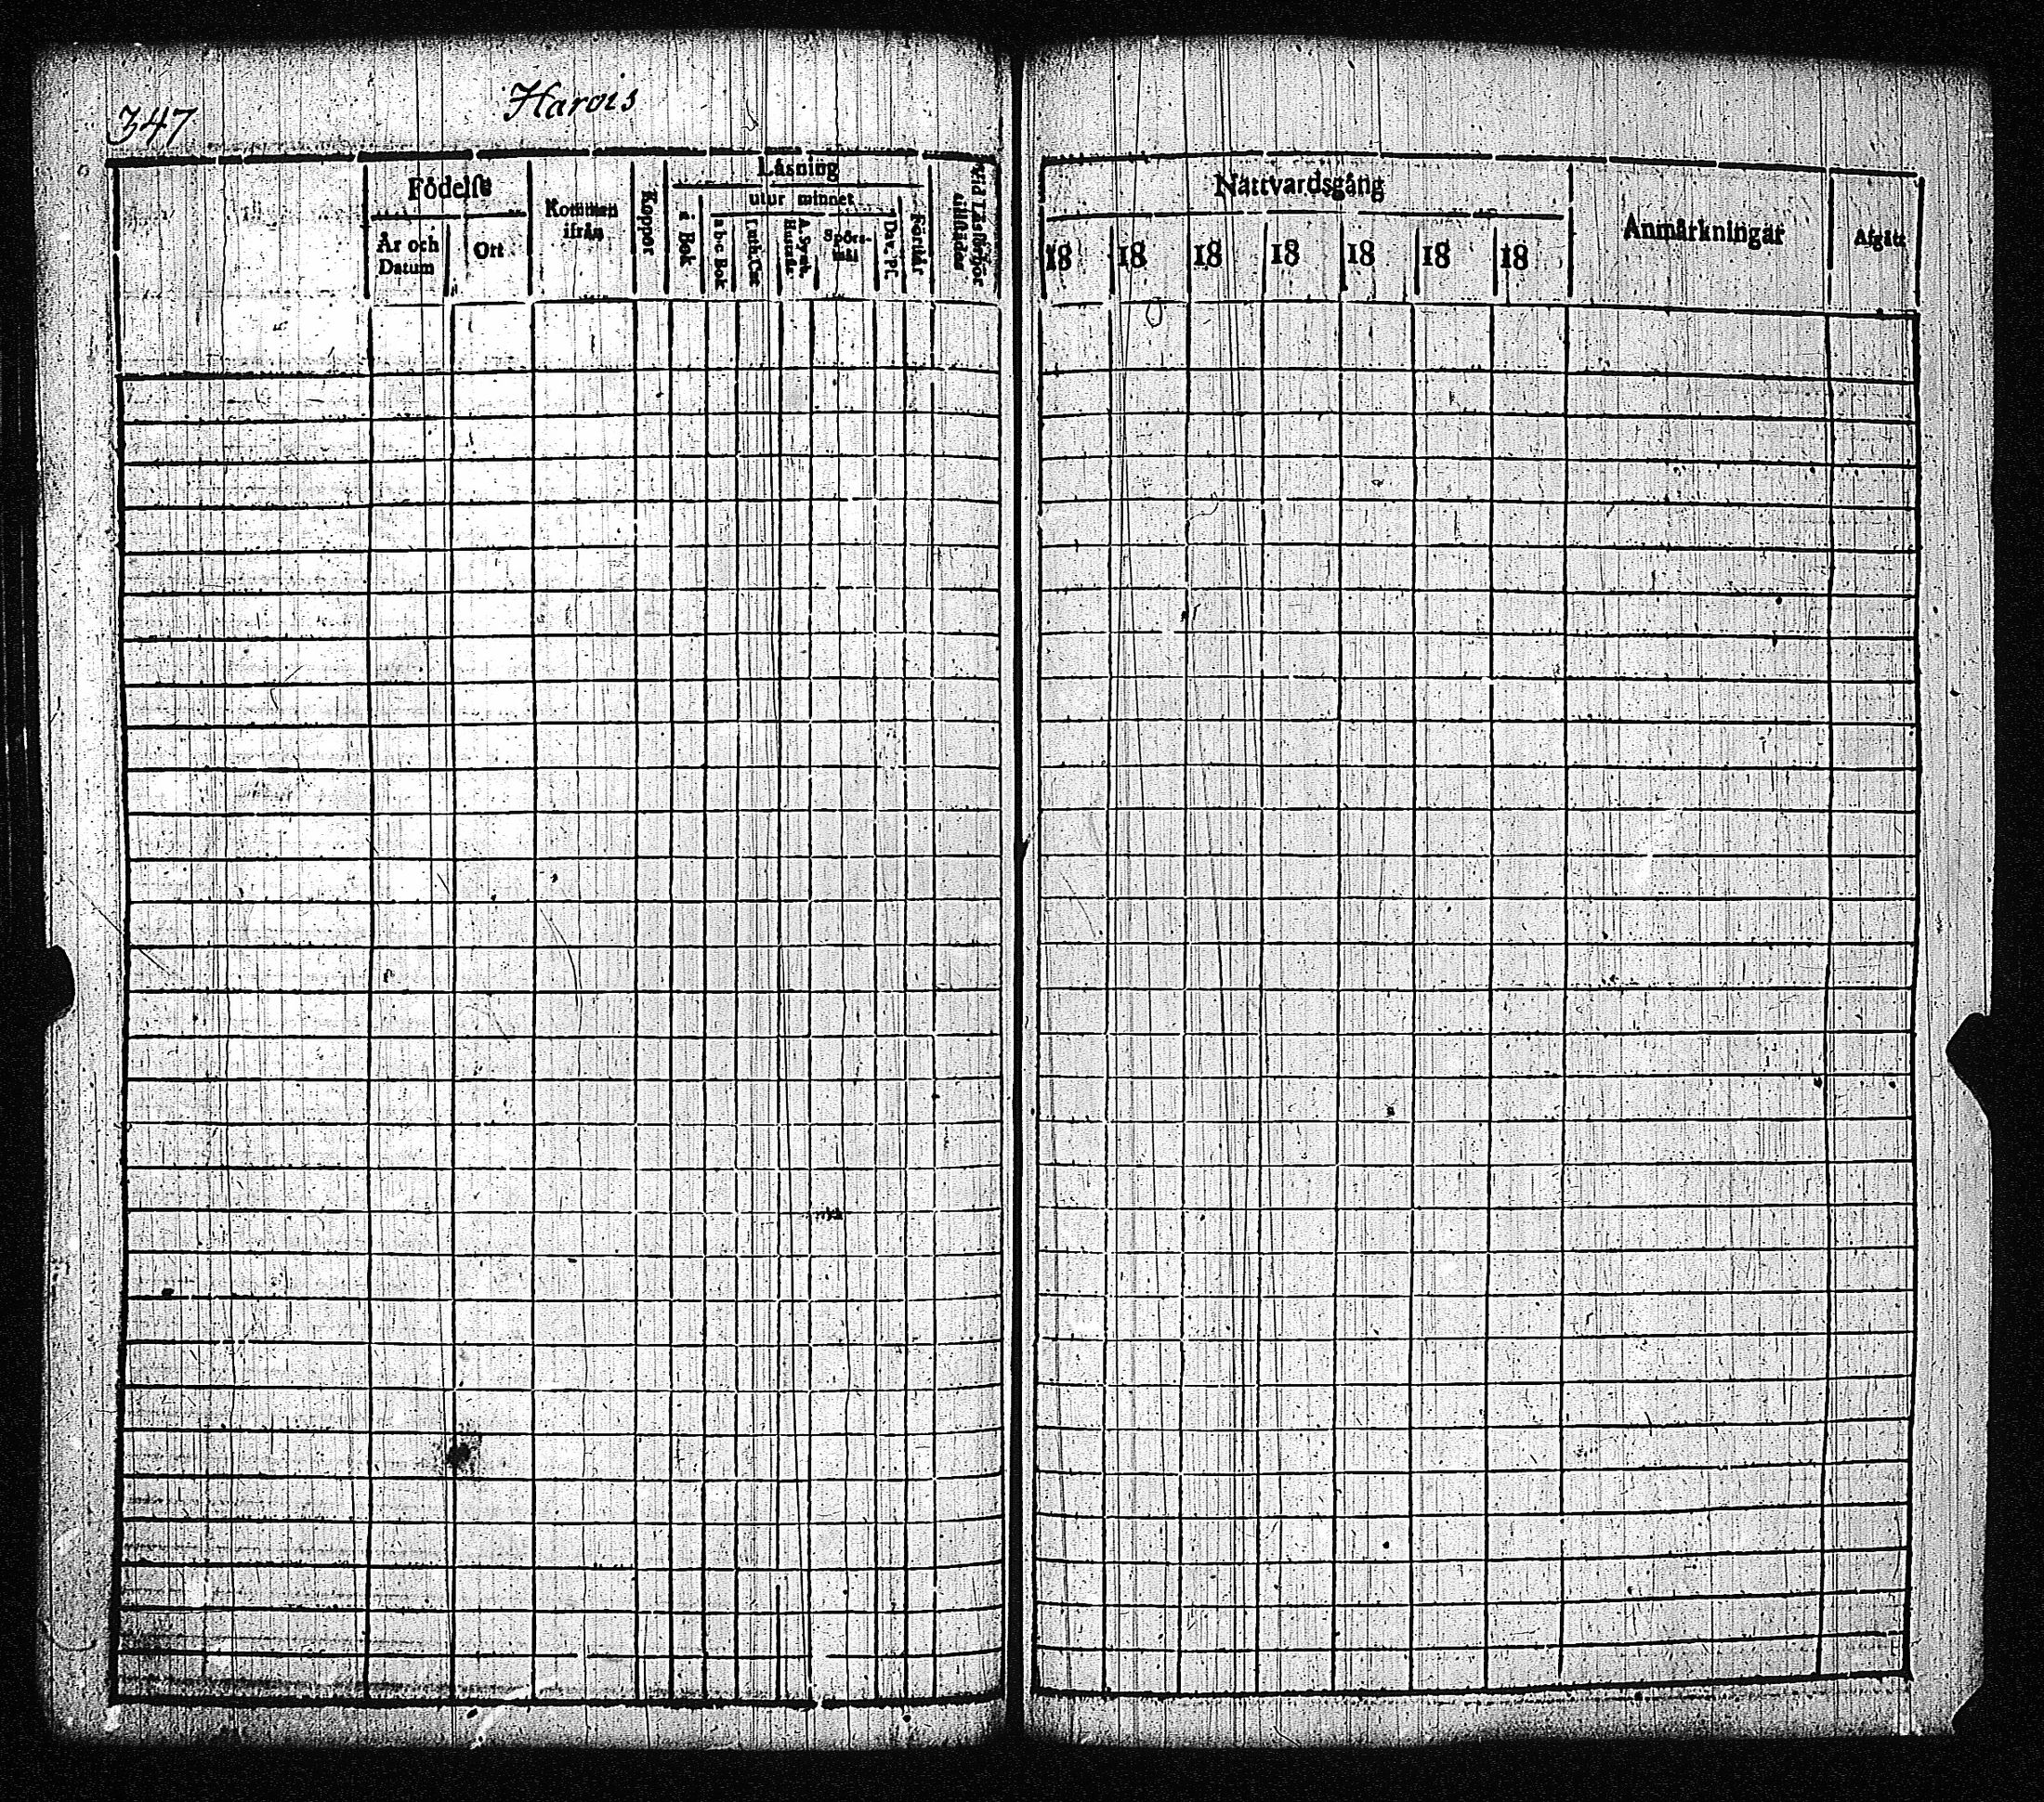 347
Harvis
Födelse
År och Datum
Ort
Kommen ifrån
Koppor
Läsning
i Bok
utur minnet
a b c Bok
Luth. Cat
A. Symb. Hustafl.
Spörs-mål
Dav. Ps.
Förstår
Vid Läsförhör tillstädes
Nattvardsgång
18 18 18 18 18 18 18
Anmärkningar
Afgått